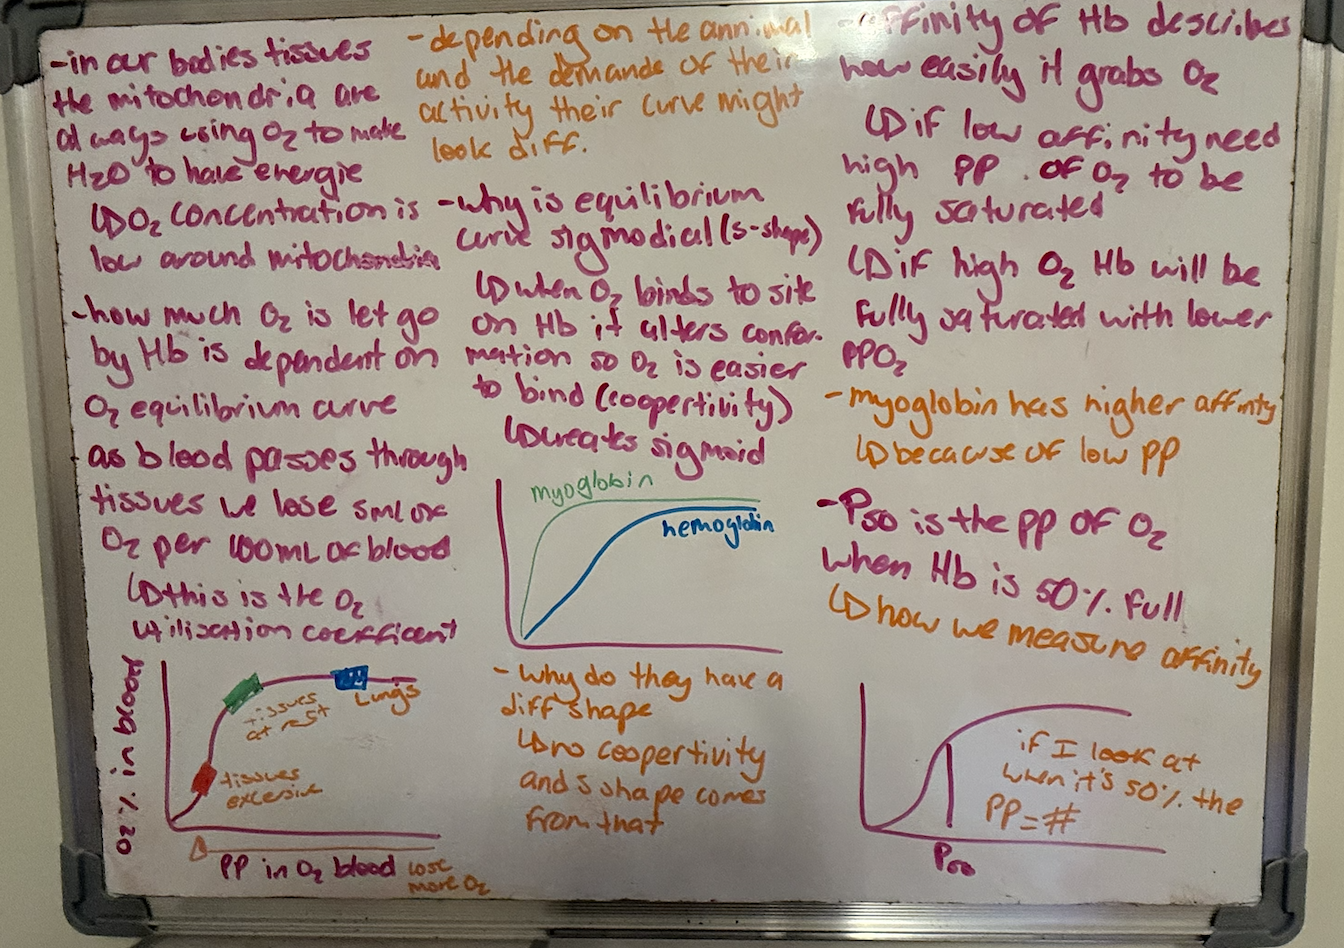 -in our bodies tissues
the mitochondria are
always using O2 to make
H2O to have energie
↳O2 concentration is
low around mitochondria
-how much O2 is let go
by Hb is dependent on
O2 equilibrium curve
as blood passes through
tissues we lose 5mL of
O2 per 100mL of blood
↳this is the O2
utilisation coefficent
O2 % in blood
tissues
at rest
Lungs
tissues
excersive
PP in O2 blood
lose
more O2
-depending on the annimal
and the demande of their
activity their curve might
look diff.
-why is equilibrium
curve sigmodical (s-shape)
↳when O2 binds to site
on Hb it alters confor-
mation so O2 is easier
to bind (coopertivity)
↳creates sigmoid
myoglobin
hemoglobin
-why do they have a
diff shape
↳no coopertivity
and s shape comes
from that
-affinity of Hb describes
how easily it grabs O2
↳if low affinity need
high PP of O2 to be
fully saturated
↳if high O2 Hb will be
fully saturated with lower
PPO2
-myoglobin has higher affinty
↳because of low PP
-P50 is the pp of O2
when Hb is 50% full
↳how we measure affinity
if I look at
when it's 50% the
PP=#
P50